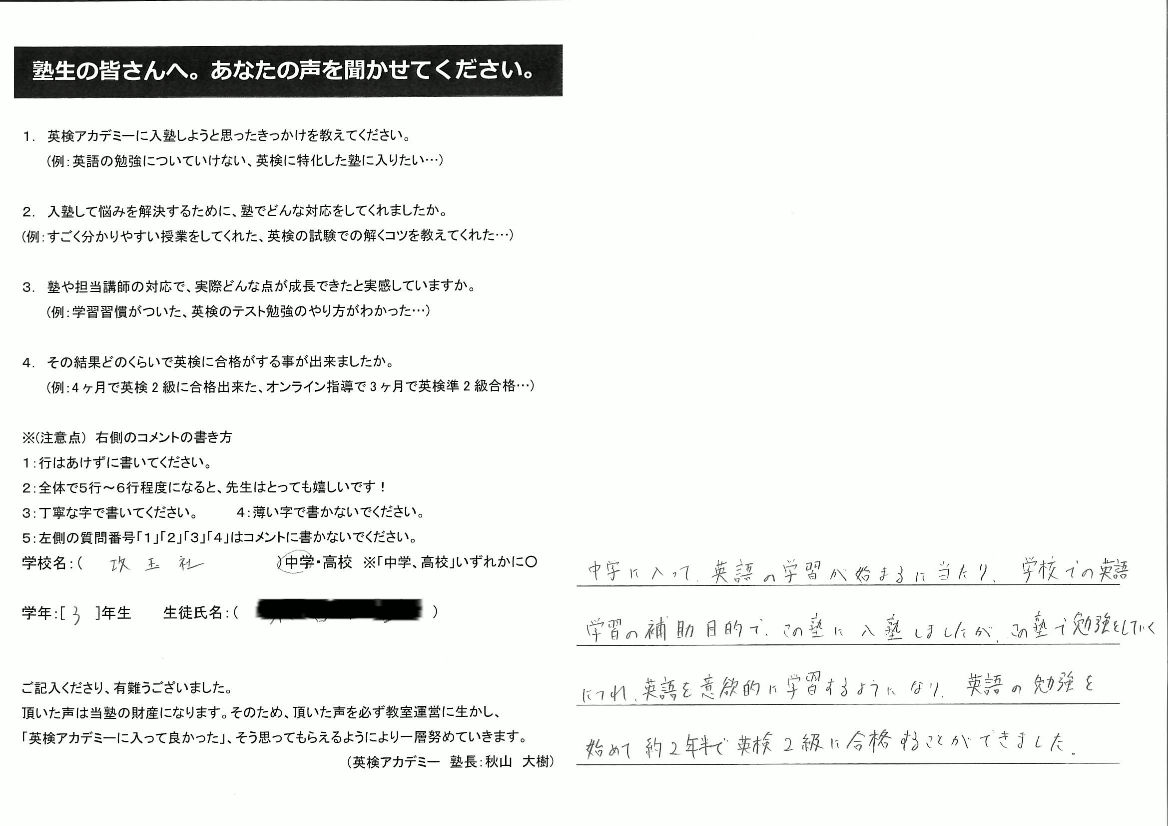 塾生の皆さんへ。あなたの声を聞かせてください。
1. 英検アカデミーに入塾しようと思ったきっかけを教えてください。
(例：英語の勉強についていけない、英検に特化した塾に入りたい…)
2. 入塾して悩みを解決するために、塾でどんな対応をしてくれましたか。
(例：すごく分かりやすい授業をしてくれた、英検の試験での解くコツを教えてくれた…)
3. 塾や担当講師の対応で、実際どんな点が成長できたと実感していますか。
(例：学習習慣がついた、英検のテスト勉強のやり方がわかった…)
4. その結果どのくらいで英検に合格がする事が出来ましたか。
(例：4ヶ月で英検2級に合格出来た、オンライン指導で3ヶ月で英検準2級合格…)
※(注意点) 右側のコメントの書き方
1：行はあけずに書いてください。
2：全体で5行～6行程度になると、先生はとっても嬉しいです！
3：丁寧な字で書いてください。 4：薄い字で書かないでください。
5：左側の質問番号「1」「2」「3」「4」はコメントに書かないでください。
学校名：( 攻玉社 )中学・高校 ※「中学、高校」いずれかに○
学年：[3 ]年生 生徒氏名：( )
ご記入くださり、有難うございました。
頂いた声は当塾の財産になります。そのため、頂いた声を必ず教室運営に生かし、
「英検アカデミーに入って良かった」、そう思ってもらえるようにより一層努めていきます。
(英検アカデミー 塾長：秋山 大樹)
中学に入って、英語の学習が始まるに当たり、学校での英語
学習の補助目的で、この塾に入塾しましたが、この塾で勉強をしていく
につれ、英語を意欲的に学習するようになり、英語の勉強を
始めて約2年半で英検2級に合格することができました。